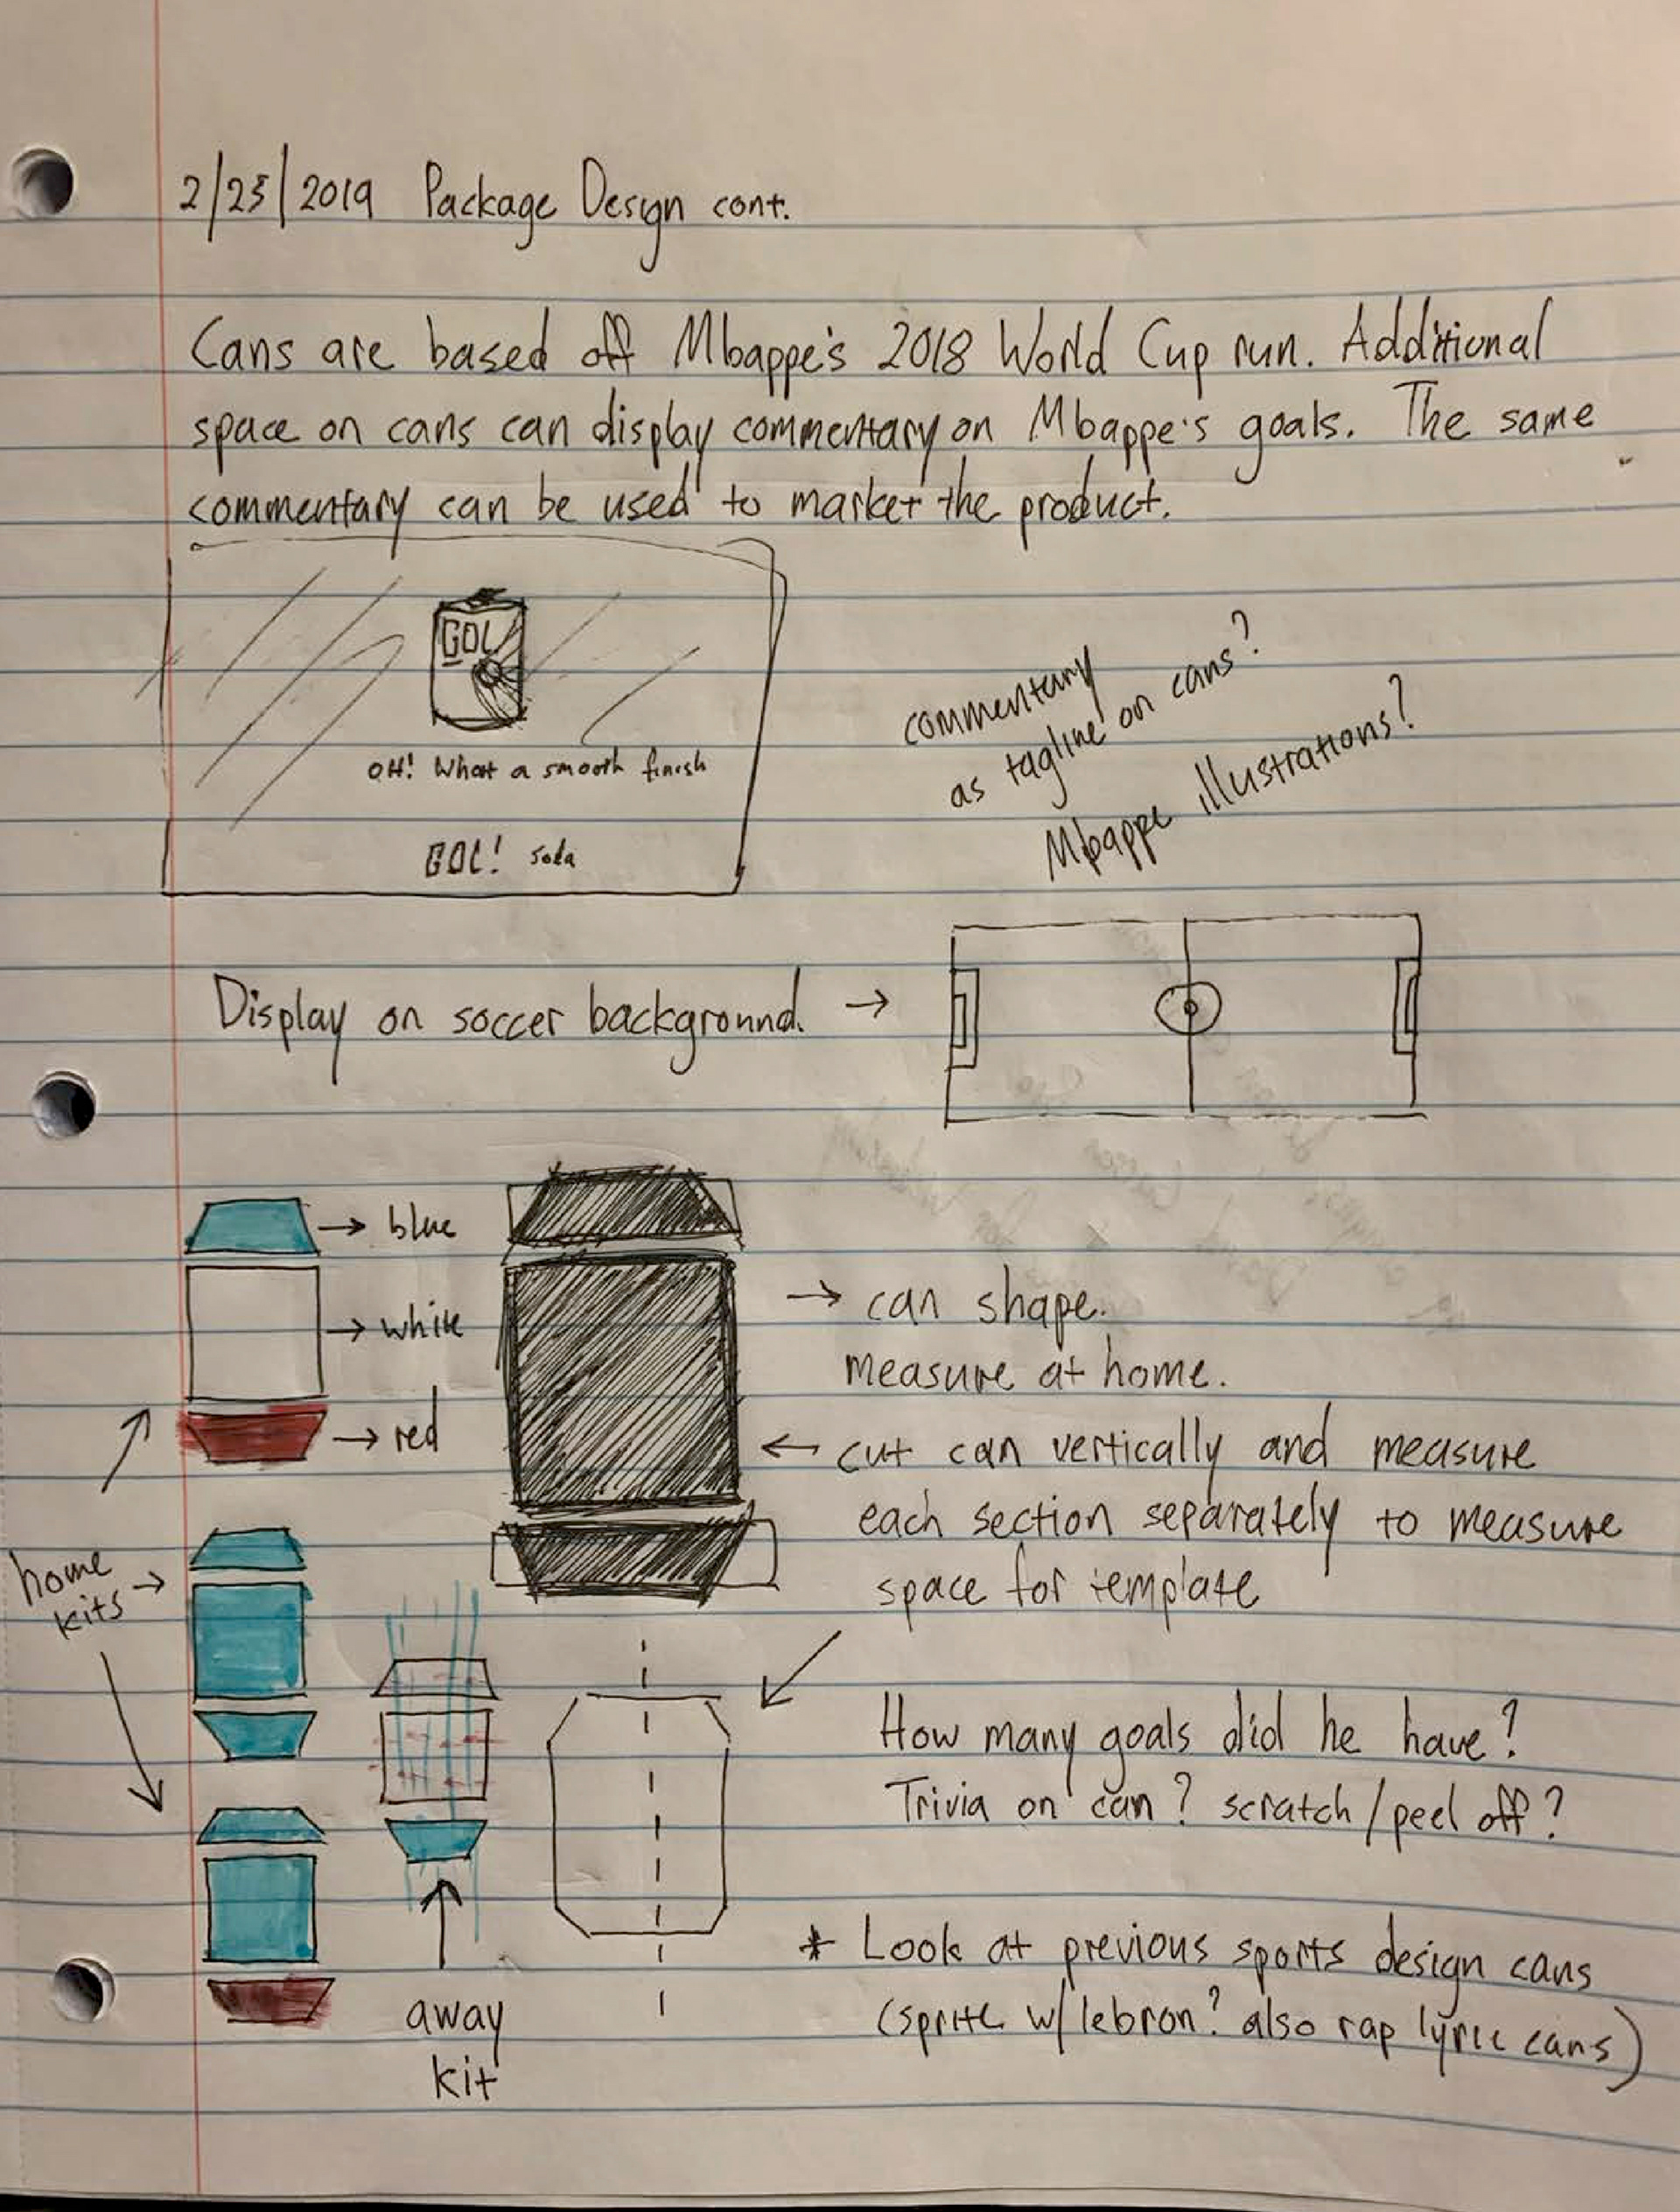 2/25/2019 Package Design cont.
Cans are based off Mbappe's 2018 World Cup run. Additional
space on cans can display commentary on Mbappe's goals. The same
commentary can be used to market the product.
GOL
OH! What a smooth finish
GOL! soda
commentary
as tagline on cans?
Mbappe illustrations?
Display on soccer background. →
→ blue
→ white
→ red
→ can shape.
measure at home.
← cut can vertically and measure
each section separately to measure
space for template
home
kits →
How many goals did he have?
Trivia on can? scratch/peel off?
away
kit
* Look at previous sports design cans
(sprite w/ lebron? also rap lyric cans)